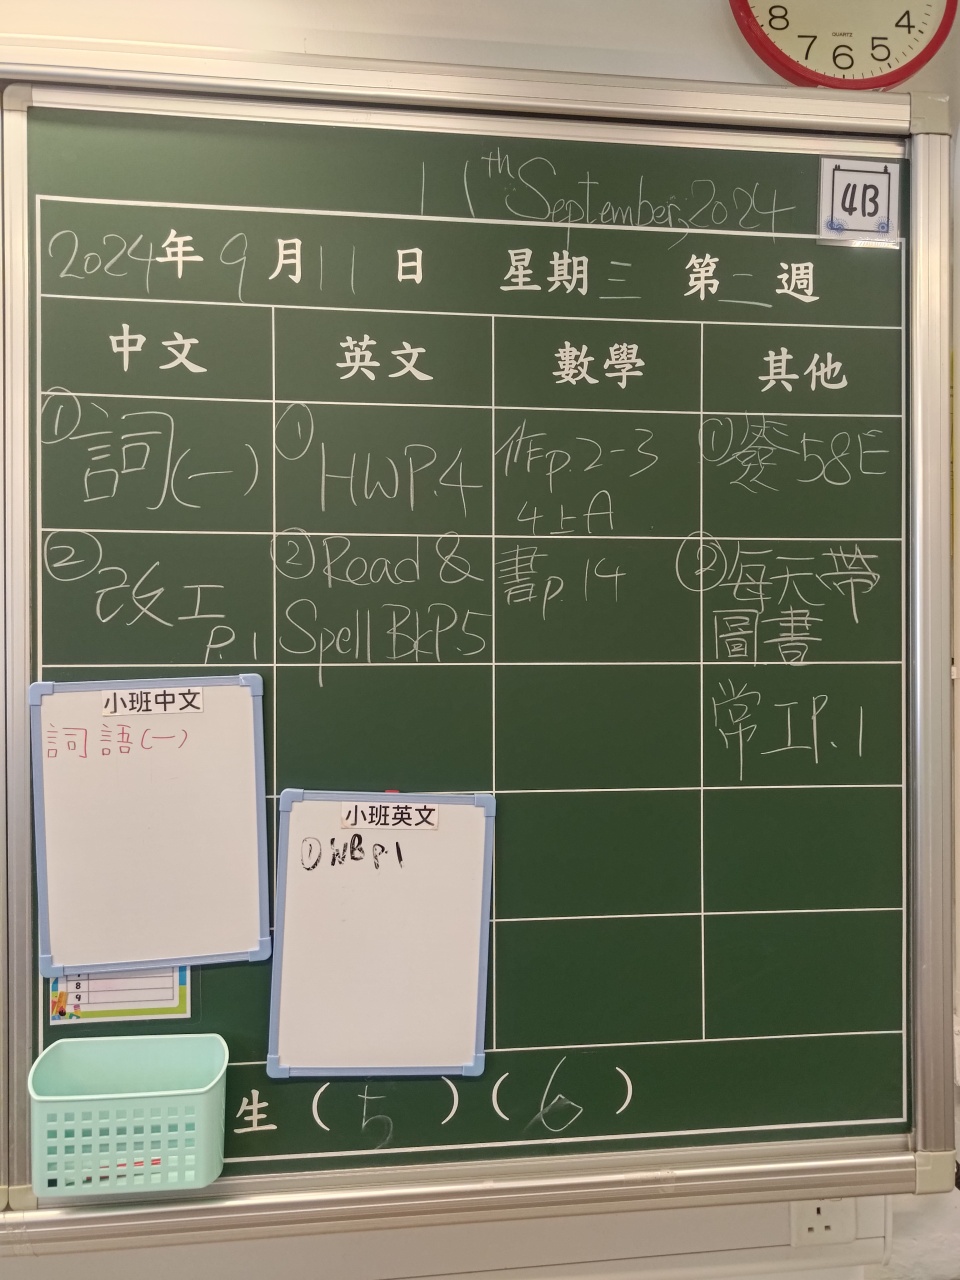 8 7 6 5 4
QUARTZ
11th September, 2024
4B
2024年9月11日 星期三 第二週
中文 英文 數學 其他
①詞(一)
①HWP.4
作p.2-3
4上A
①簽58E
②改工
P.1
②Read &
Spell BkP.5
書p.14
②每天帶
圖書
常工P.1
小班中文
詞語(一)
小班英文
①WB p.1
8
9
生(5)(6)